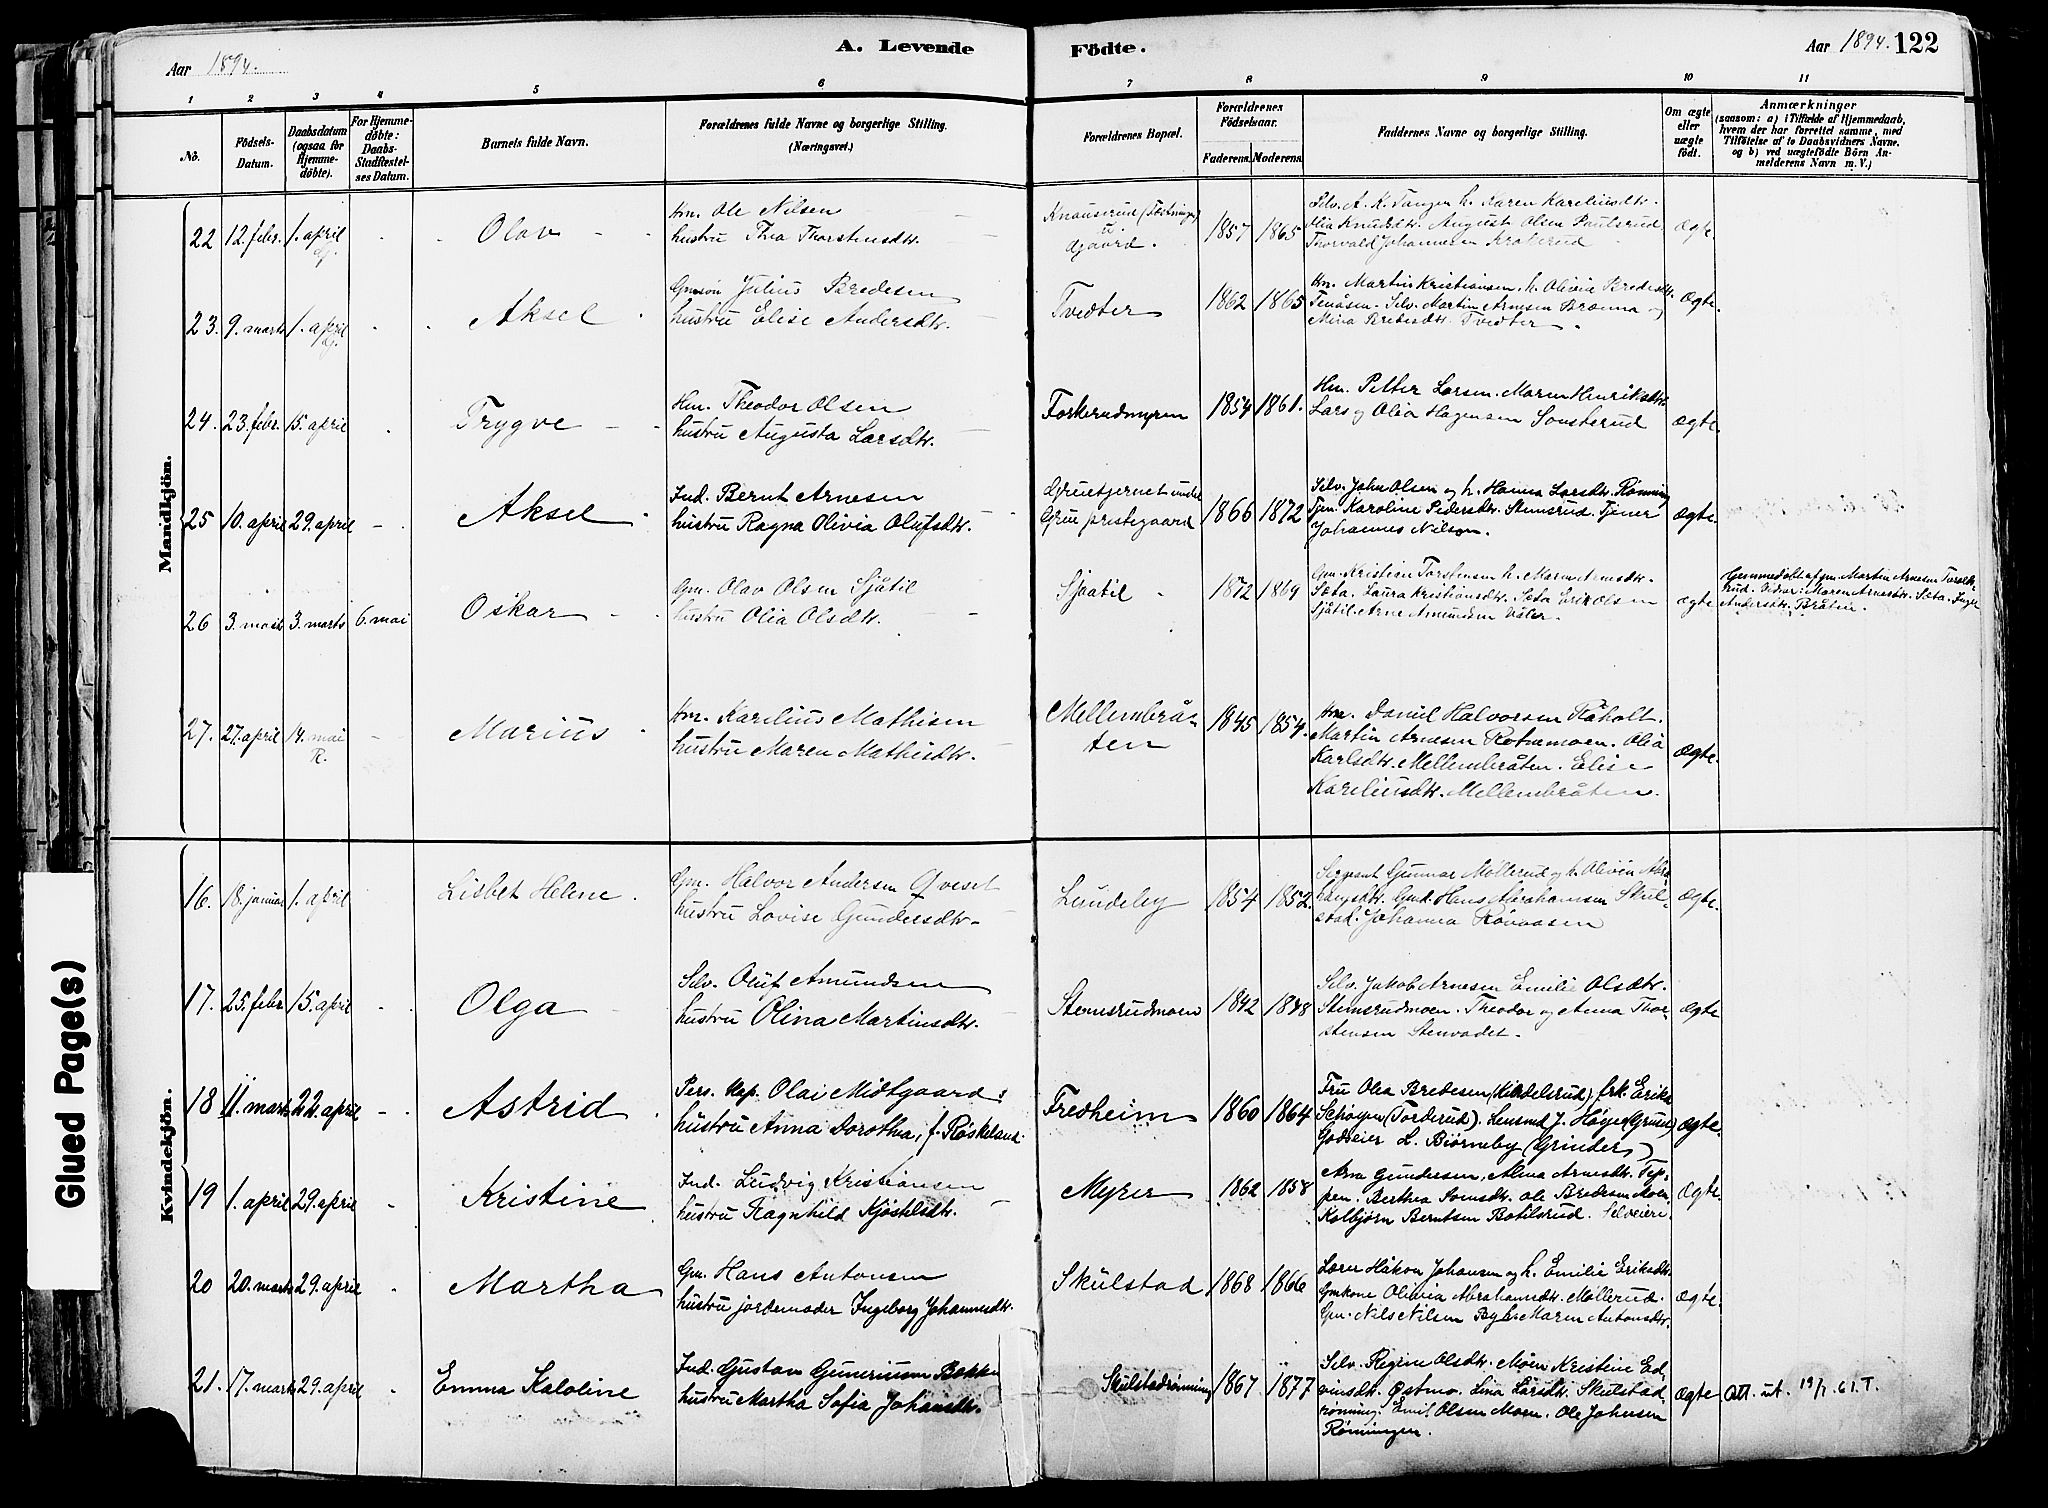 Aar 1894.
A. Levende
Födte.
Aar 1894.
122
1 2 3 4 5 6 7 8 9 10 11
No.
Födsels-
Datum.
Daabsdatum
(ogsaa for
Hjemme-
døbte).
For Hjemme-
døbte:
Daabs-
Stadfæstel-
ses Datum.
Barnets fulde Navn.
Forældrenes fulde Navne og borgerlige Stilling.
(Næringsvei.)
Forældrenes Bopæl.
Forældrenes
Födselsaar.
Faderens. Moderens.
Faddernes Navne og borgerlige Stilling.
Om ægte
eller
uægte
født.
Anmærkninger
(saasom: a) i Tilfælde af Hjemmedaab,
hvem der har forrettet samme, med
Tilföielse af to Daabsvidners Navne,
og b) ved uægtefödte Börn An-
melderens Navn m. V.)
Mandkjön.
22 12. febr. 1. april
Olav
Hm. Ole Nilsen
hustru Thea Thorstensdtr.
Agaard.
1857 1865
Selv. A. K. Tangen h. Karen Kareliusdtr.
Olia Knudsdtr. August Olsen Paulsrud
Thorvald Johannesen
Ægte.
23. 9. marts 1. april
Aksel
Gmsøn Julius Bredesen
hustru Elise Andersdtr.
Tvedter
1862 1865
Hm. Martin Kristiansen. h. Olivia Bredesdtr.
Selv. Martin Arnesen Brænna og
Mina Tvedter.
Ægte.
24. 23. febr. 15. april
Trygve
Hm. Theodor Olsen
hustru Augusta Larsdtr.
Forkerudmyren
1854 1861.
Hm. Petter Larsen. Maren Henriksdtr.
Lars og Olia Hagensen Sonsterud
Ægte.
25 10. april 29. april
Aksel
Ind. Bernt Arnesen
hustru Ragna Olivia Olufsdtr.
Gruetjernet under
Grue prestegaard
1866 1872
Selv. John Olsen og h. Hanna Larsdtr. Rønning
Tjen. Karoline Pedersdtr. Stemsrud. Tjener
Johannes Nilsen.
Ægte.
26 3. marts 3. marts 6. mai
Oskar
Gm. Olav Olsen Sjåtil
hustru Olia Olsdtr.
Sjaatil
1872 1869
Gm. Kristian Torstensen h. Maren Arnesdtr.
Sæta. Laura Kristiansdtr. Sæta Erik Olsen
Sjåtil. Arne Amundsen Våler.
ægte
Hjemmedøbt af gm. Martin Arnesen
rud. Vidner: Maren Arnesdtr. Sæta. Inger
Andersdtr. Bråten.
27. 27. april 14. mai
R.
Marius
Hm. Karelius Mathisen
hustru Maren Mathisdtr.
Mellembrå-
ten
1845 1854.
Hm. Daniel Halvorsen Råholt.
Martin Arnesen Rotnemoen. Olia
Karlsdtr. Mellembråten. Elise
Kareliusdtr. Mellembråten.
Ægte.
Kvindekjön.
16. 18. januar 1. april
Lisbet Helene.
Gm. Halvor Andersen Qveset
hustru Lovise Gundersdtr.
Lundeby
1854 1852.
Sergeant Gunnar Møllerud og h. Olivia Abra-
hamsdtr. Gmd. Hans Abrahamsen Skul-
stad. Johanna
Ægte.
17. 25. febr. 15. april
Olga
Selv. Oluf Amundsen
hustru Olina Martinsdtr.
Stemsrudmoen
1842 1848
Selv. Jakob Arnesen Emilie Olsdtr.
Stemsrudmoen. Theodor og Anna Thor-
stensen Stenvadet.
Ægte
18 11. marts 22. april
Astrid
Pers. Kap. Olai Midtgaard:
hustru Anna Dorothea, f. Røskeland.
Fredheim
1860 1864
Fru Olea Bredesen (Kirdelsrud), frk. Erika
Schøyen (Torderud). Lensmd J. Høyer (Gruer)
Godseier L. Biørneby (Grinder)
Ægte.
19 1. april 29. april
Kristine
Ind. Ludvig Kristiansen
hustru Ragnhild Kjøstelsdtr.
Myrer
1862 1858
Arne Gundersen, Alma Arnesdtr. Tep-
pen. Berthea Ole Bredesen Moen
Kolbjørn Berntsen Botilsrud. Selveiere
Ægte.
20 20. marts 29. april
Martha
Gm. Hans Antonsen
hustru jordemoder Ingeborg Johannesdtr.
Skulstad
1868 1866
Lærer Håkon Johansen og h. Emilie Eriksdtr.
Gmkone Olivia Abrahamsdtr. Møllerud.
Gm. Nils Nilsen By h. Maren Antonsdtr.
Ægte.
21. 17. marts 29. april
Emma Kaloline
Ind. Gustav Guneriusen Bakke
hustru Martha Sofia Johansdtr.
Skulstadrønning
1867 1877
Selv. Regine Olsdtr. Moen Kristine Ed-
vinsdtr. Østmo. Lina Larsdtr. Skulstad-
rønning. Emil Olsen Moen. Ole Johnsen
Rønningen.
Ægte
Att. ut. 19/1. 61. T.
Glued Page(s)